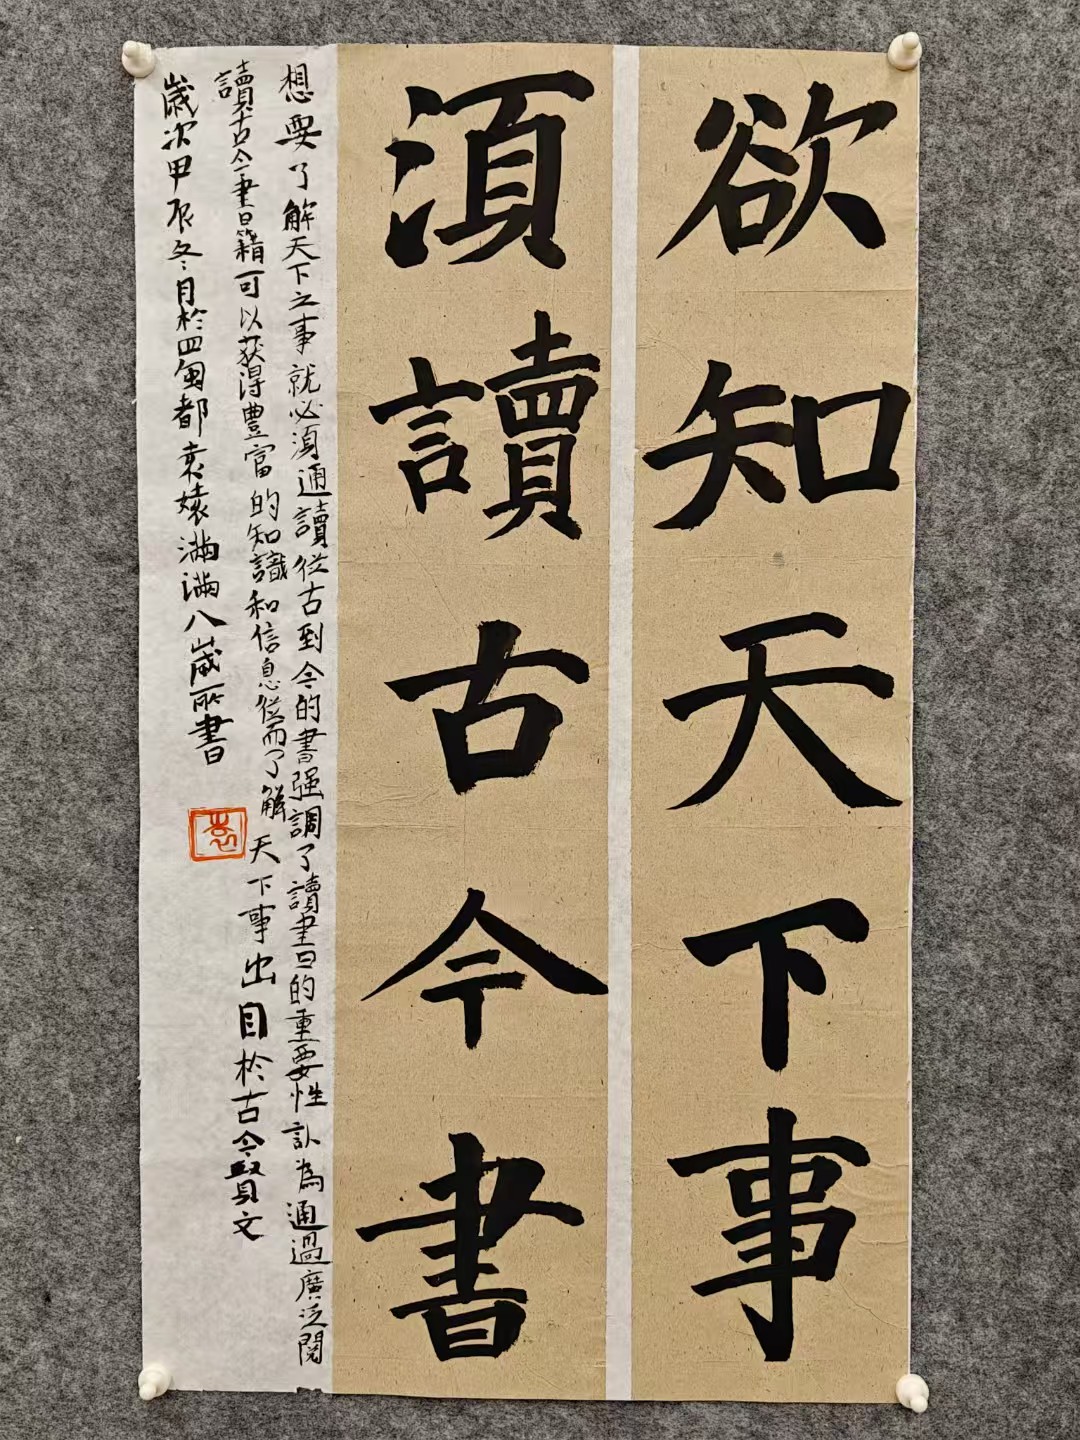 欲知天下事
湏讀古今書
想要了解天下之事就必湏通讀從古到今的書强調了讀書的重要性認為通過廣泛閱
讀古今書籍可以获得豐富的知識和信息從而了解天下事出自於古今賢文
歲次甲辰冬月於四蜀都袁媴滿滿八歲所書
袁